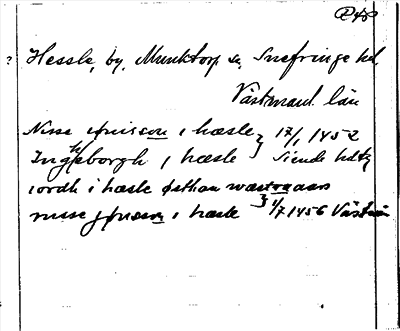 P 48
? Hessle, by, Munktorp sn, Snefringe hd.
Västmanl. län
Nisse jønisson i hæsle } 17/1 1452
Ingheborgh i hæsle } Siende hdtg
iordh i hæsle østhan wæstraaars
nisse jønsson i hæsle } 1/7 1456 Västerås